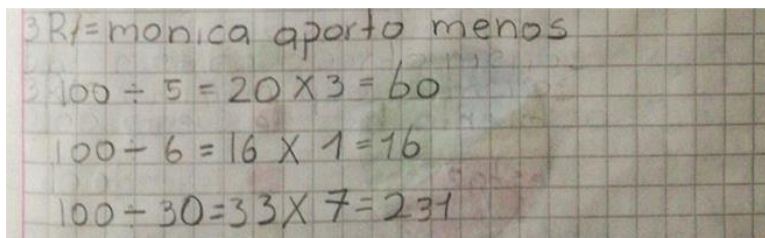 3R/= monica aporto menos
100 ÷ 5 = 20 X 3 = 60
100 ÷ 6 = 16 X 1 = 16
100 ÷ 30 = 33 X 7 = 231